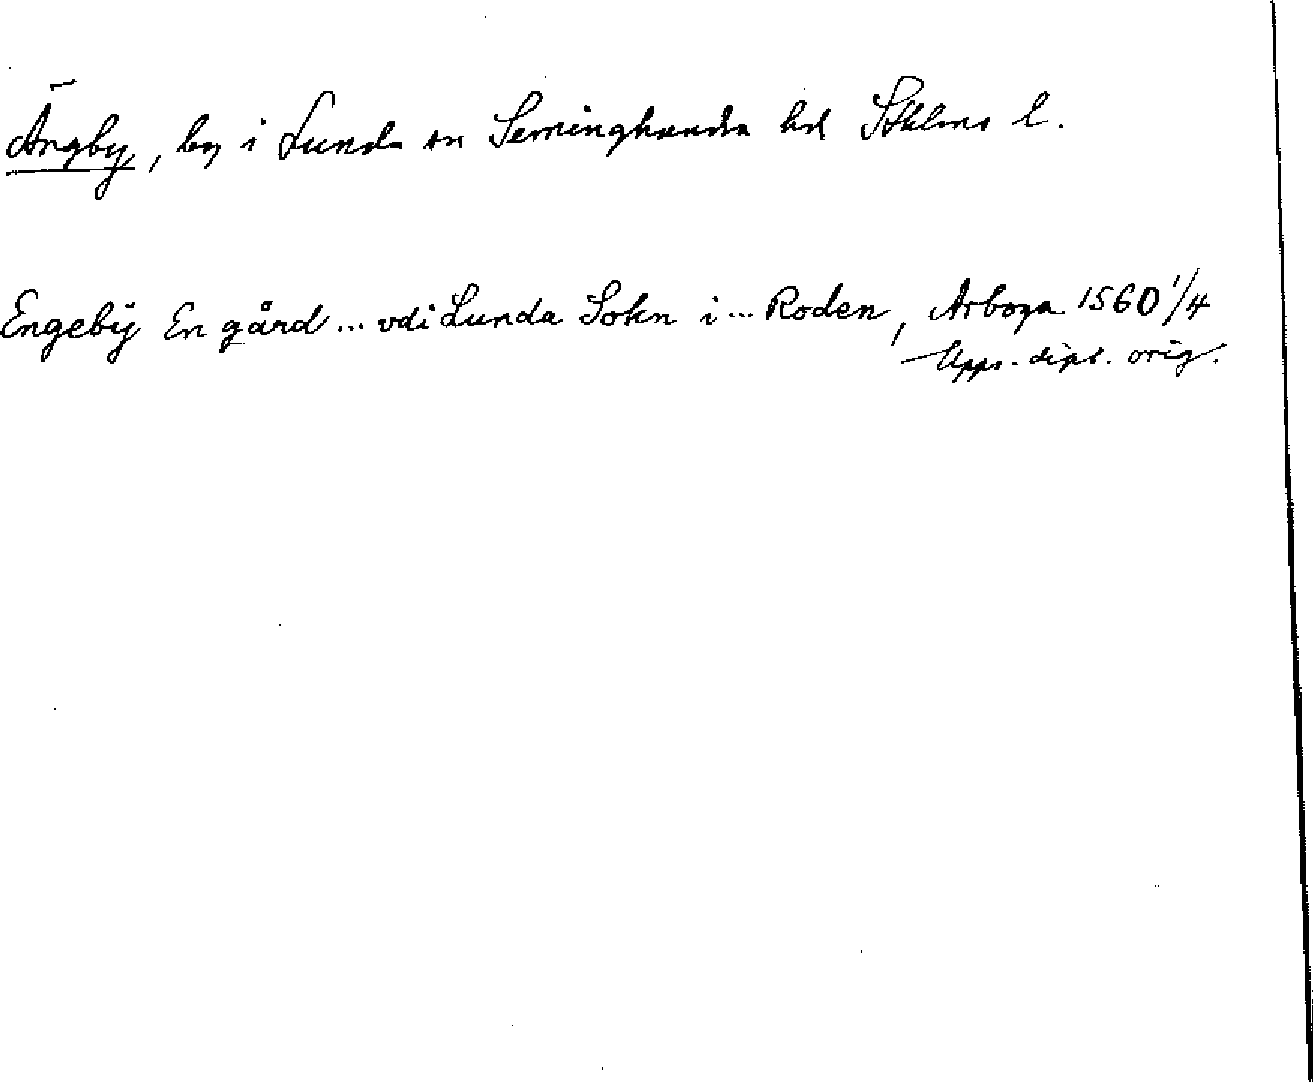 Ängby, by i Lunda sn Seminghundra hd Sthlms l.
Engebÿ En gård ... vdi Lunda Sokn i ... Roden, Arboga 1560 1/4
Upps. dipl. orig.